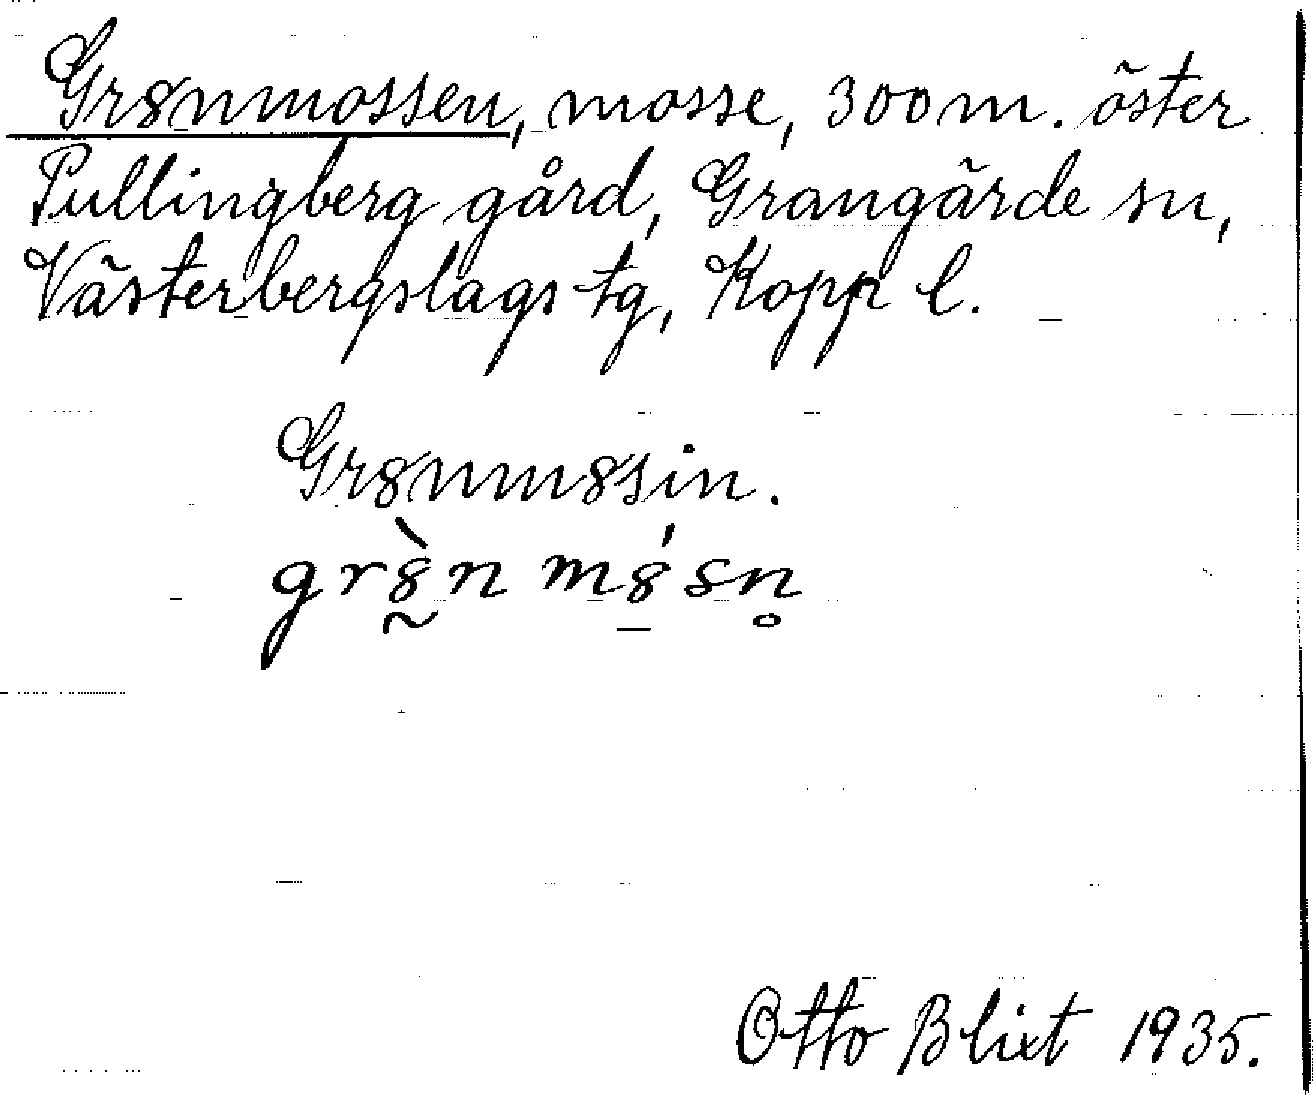 Gr8nmossen, mosse, 300 m. öster
Pullingberg gård, Grangärde sn,
Västerbergslags tg, Kopp l.
Gr8nm8sin.
gr8̰̀n m8̱́sn̥
Otto Blixt 1935.